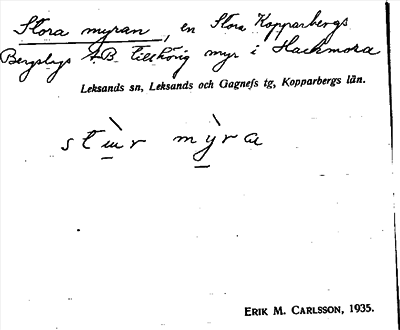 Stora myran, en Stora Kopparbergs
Bergslags A.B. tillhörig myr i Hackmora
Leksands sn, Leksands och Gagnefs tg, Kopparbergs län.
stɯ̀r mỳra
ERIK M. CARLSSON, 1935.